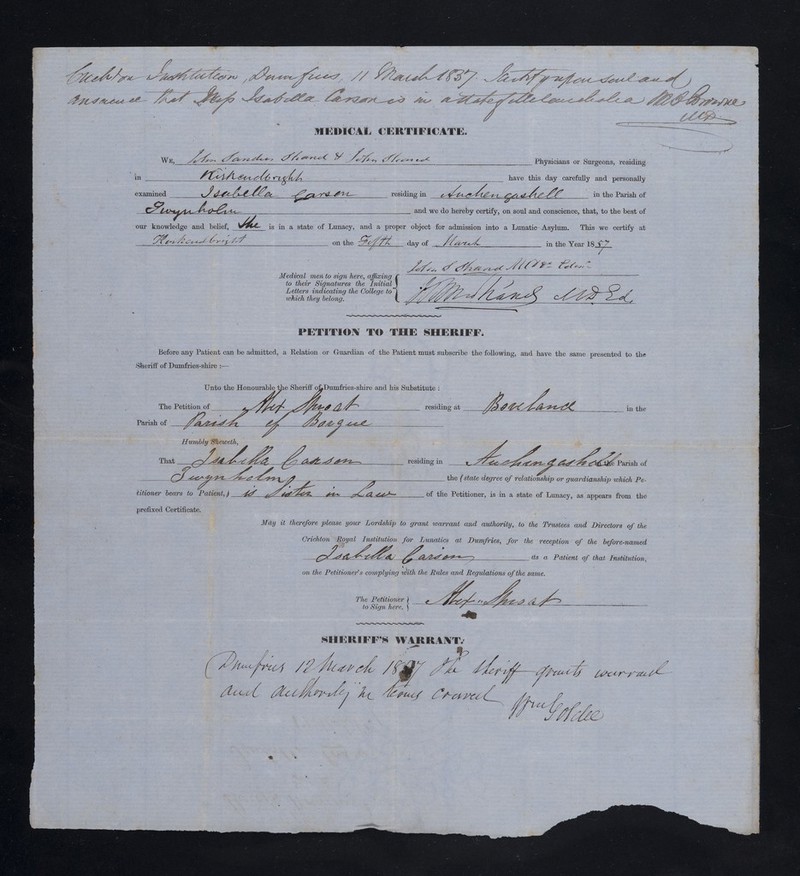 Crichton Institution, Dumfries, 11 March 1857. I certify upon soul and
conscience that Miss Isabella Carson is in a state of Melancholia
MD
MEDICAL CERTIFICATE.
We, John Shand & Physicians or Surgeons, residing
in Kirkcudbright have this day carefully and personally
examined Isabella Carson residing in Auchengashell in the Parish of
Twynholm and we do hereby certify, on soul and conscience, that, to the best of
our knowledge and belief, She is in a state of Lunacy, and a proper object for admission into a Lunatic Asylum. This we certify at
Kirkcudbright on the Fifth day of March in the Year 1857
John S Shand MD
Medical men to sign here, affixing
to their Signatures the Initial
Letters indicating the College to
which they belong.
Shand MD. Ed.
PETITION TO THE SHERIFF.
Before any Patient can be admitted, a Relation or Guardian of the Patient must subscribe the following, and have the same presented to the
Sheriff of Dumfries-shire :—
Unto the Honourable the Sheriff of Dumfries-shire and his Substitute :
The Petition of Alex Sproat residing at Boreland in the
Parish of Parish of Borgue
Humbly Sheweth,
That Isabella Carson residing in Auchengashell Parish of
Twynholm the (state degree of relationship or guardianship which Pe-
titioner bears to Patient,) is Sister in Law of the Petitioner, is in a state of Lunacy, as appears from the
prefixed Certificate.
May it therefore please your Lordship to grant warrant and authority, to the Trustees and Directors of the
Crichton Royal Institution for Lunatics at Dumfries, for the reception of the before-named
Isabella Carson as a Patient of that Institution,
on the Petitioner's complying with the Rules and Regulations of the same.
The Petitioner
to Sign here.
Alexr Sproat
SHERIFF'S WARRANT.
Dumfries 12 March 1857 The Sheriff grants warrant
and authority in terms craved